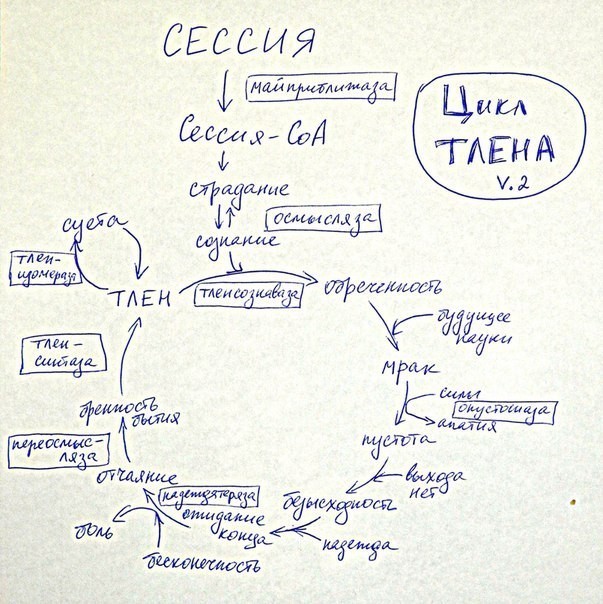 СЕССИЯ
майприближаза
Цикл
ТЛЕНА
v.2
Сессия-СоА
страдание
осмысляза
сознание
суета
тлен-
изомераза
ТЛЕН
тленсознаваза
обреченность
будущее
науки
тлен-
синтаза
мрак
силы
опустошаза
апатия
бренность
бытия
пустота
переосмыс-
ляза
отчаяние
выхода
нет
надеждтеряза
безысходность
ожидание
конца
надежда
боль
бесконечность